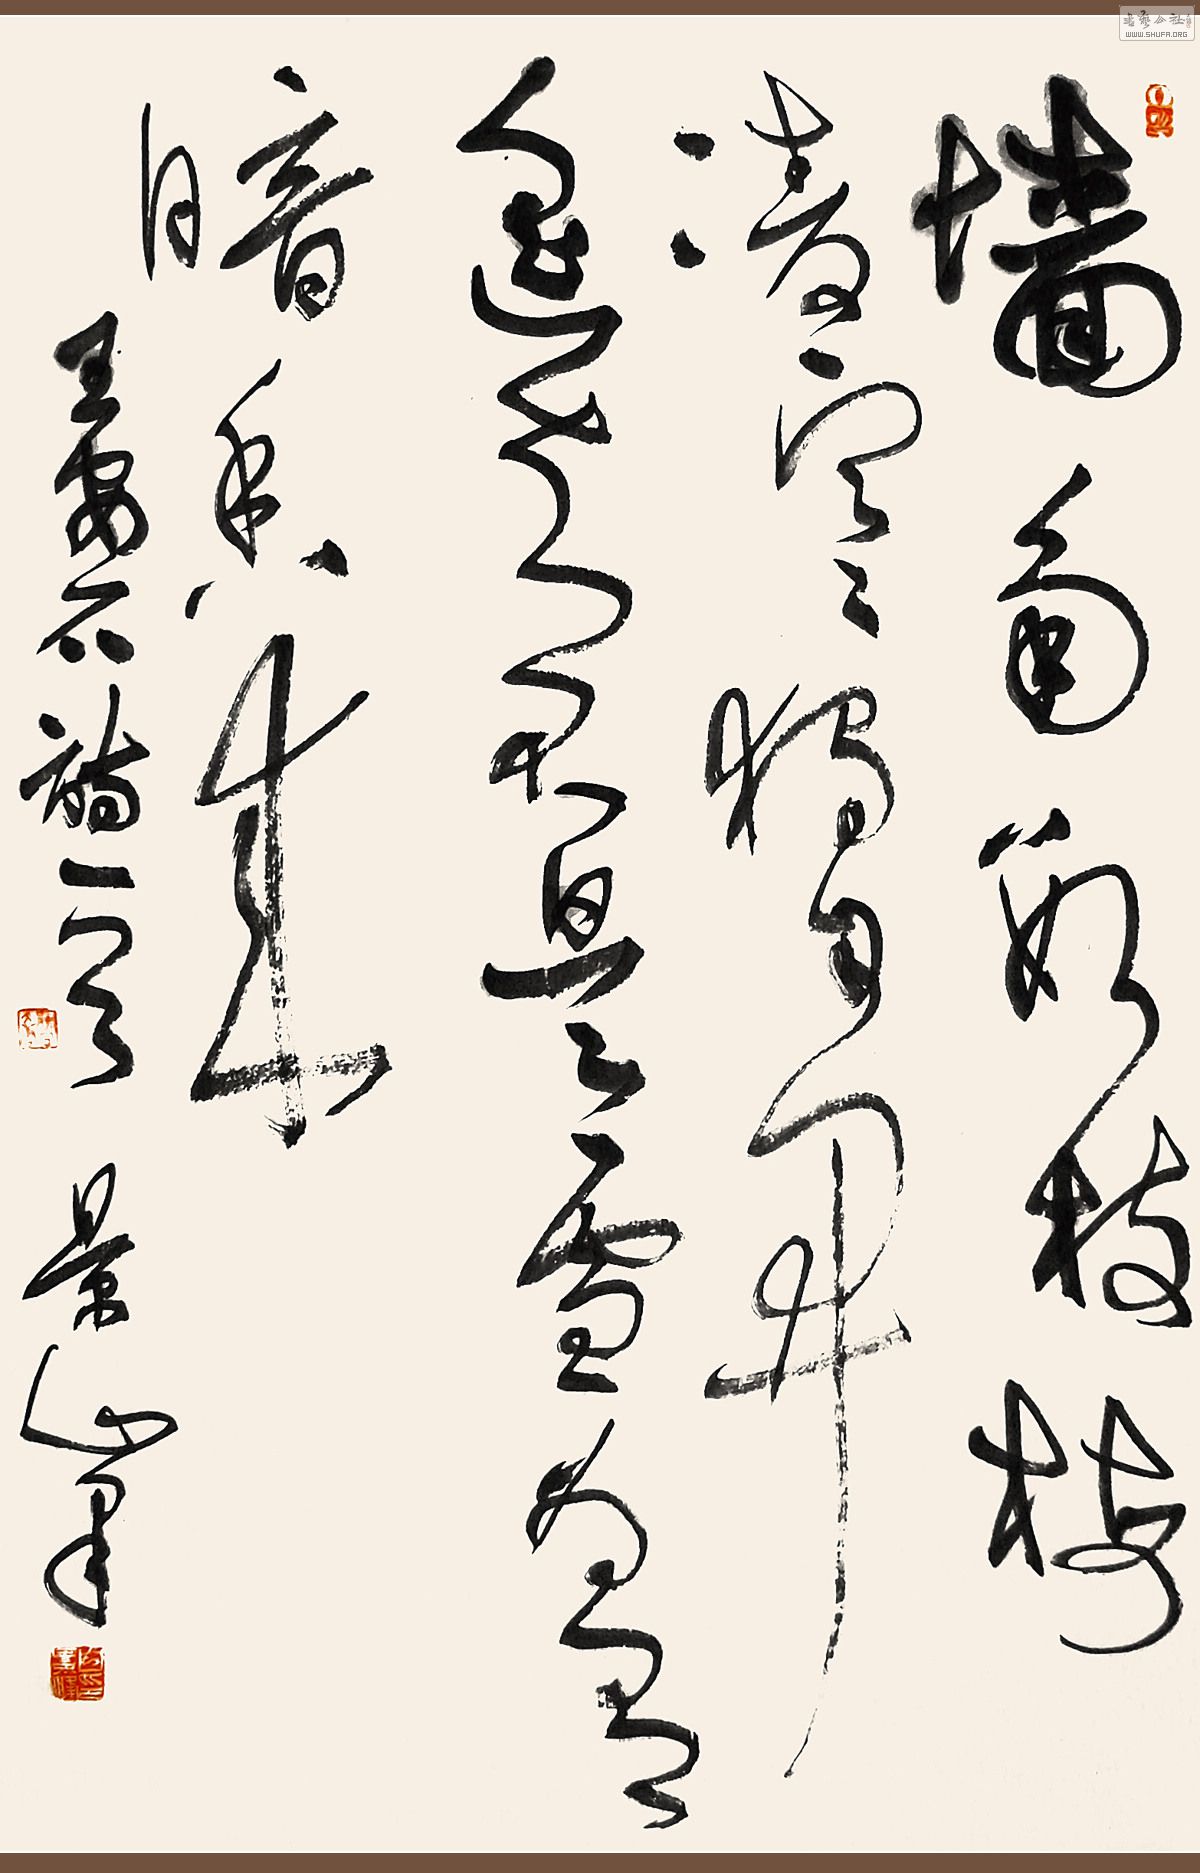 墙角数枝梅
凌寒独自开
遥知不是雪为有
暗香来
王安石诗一首 景山笔
书艺公社
WWW.SHUFA.ORG